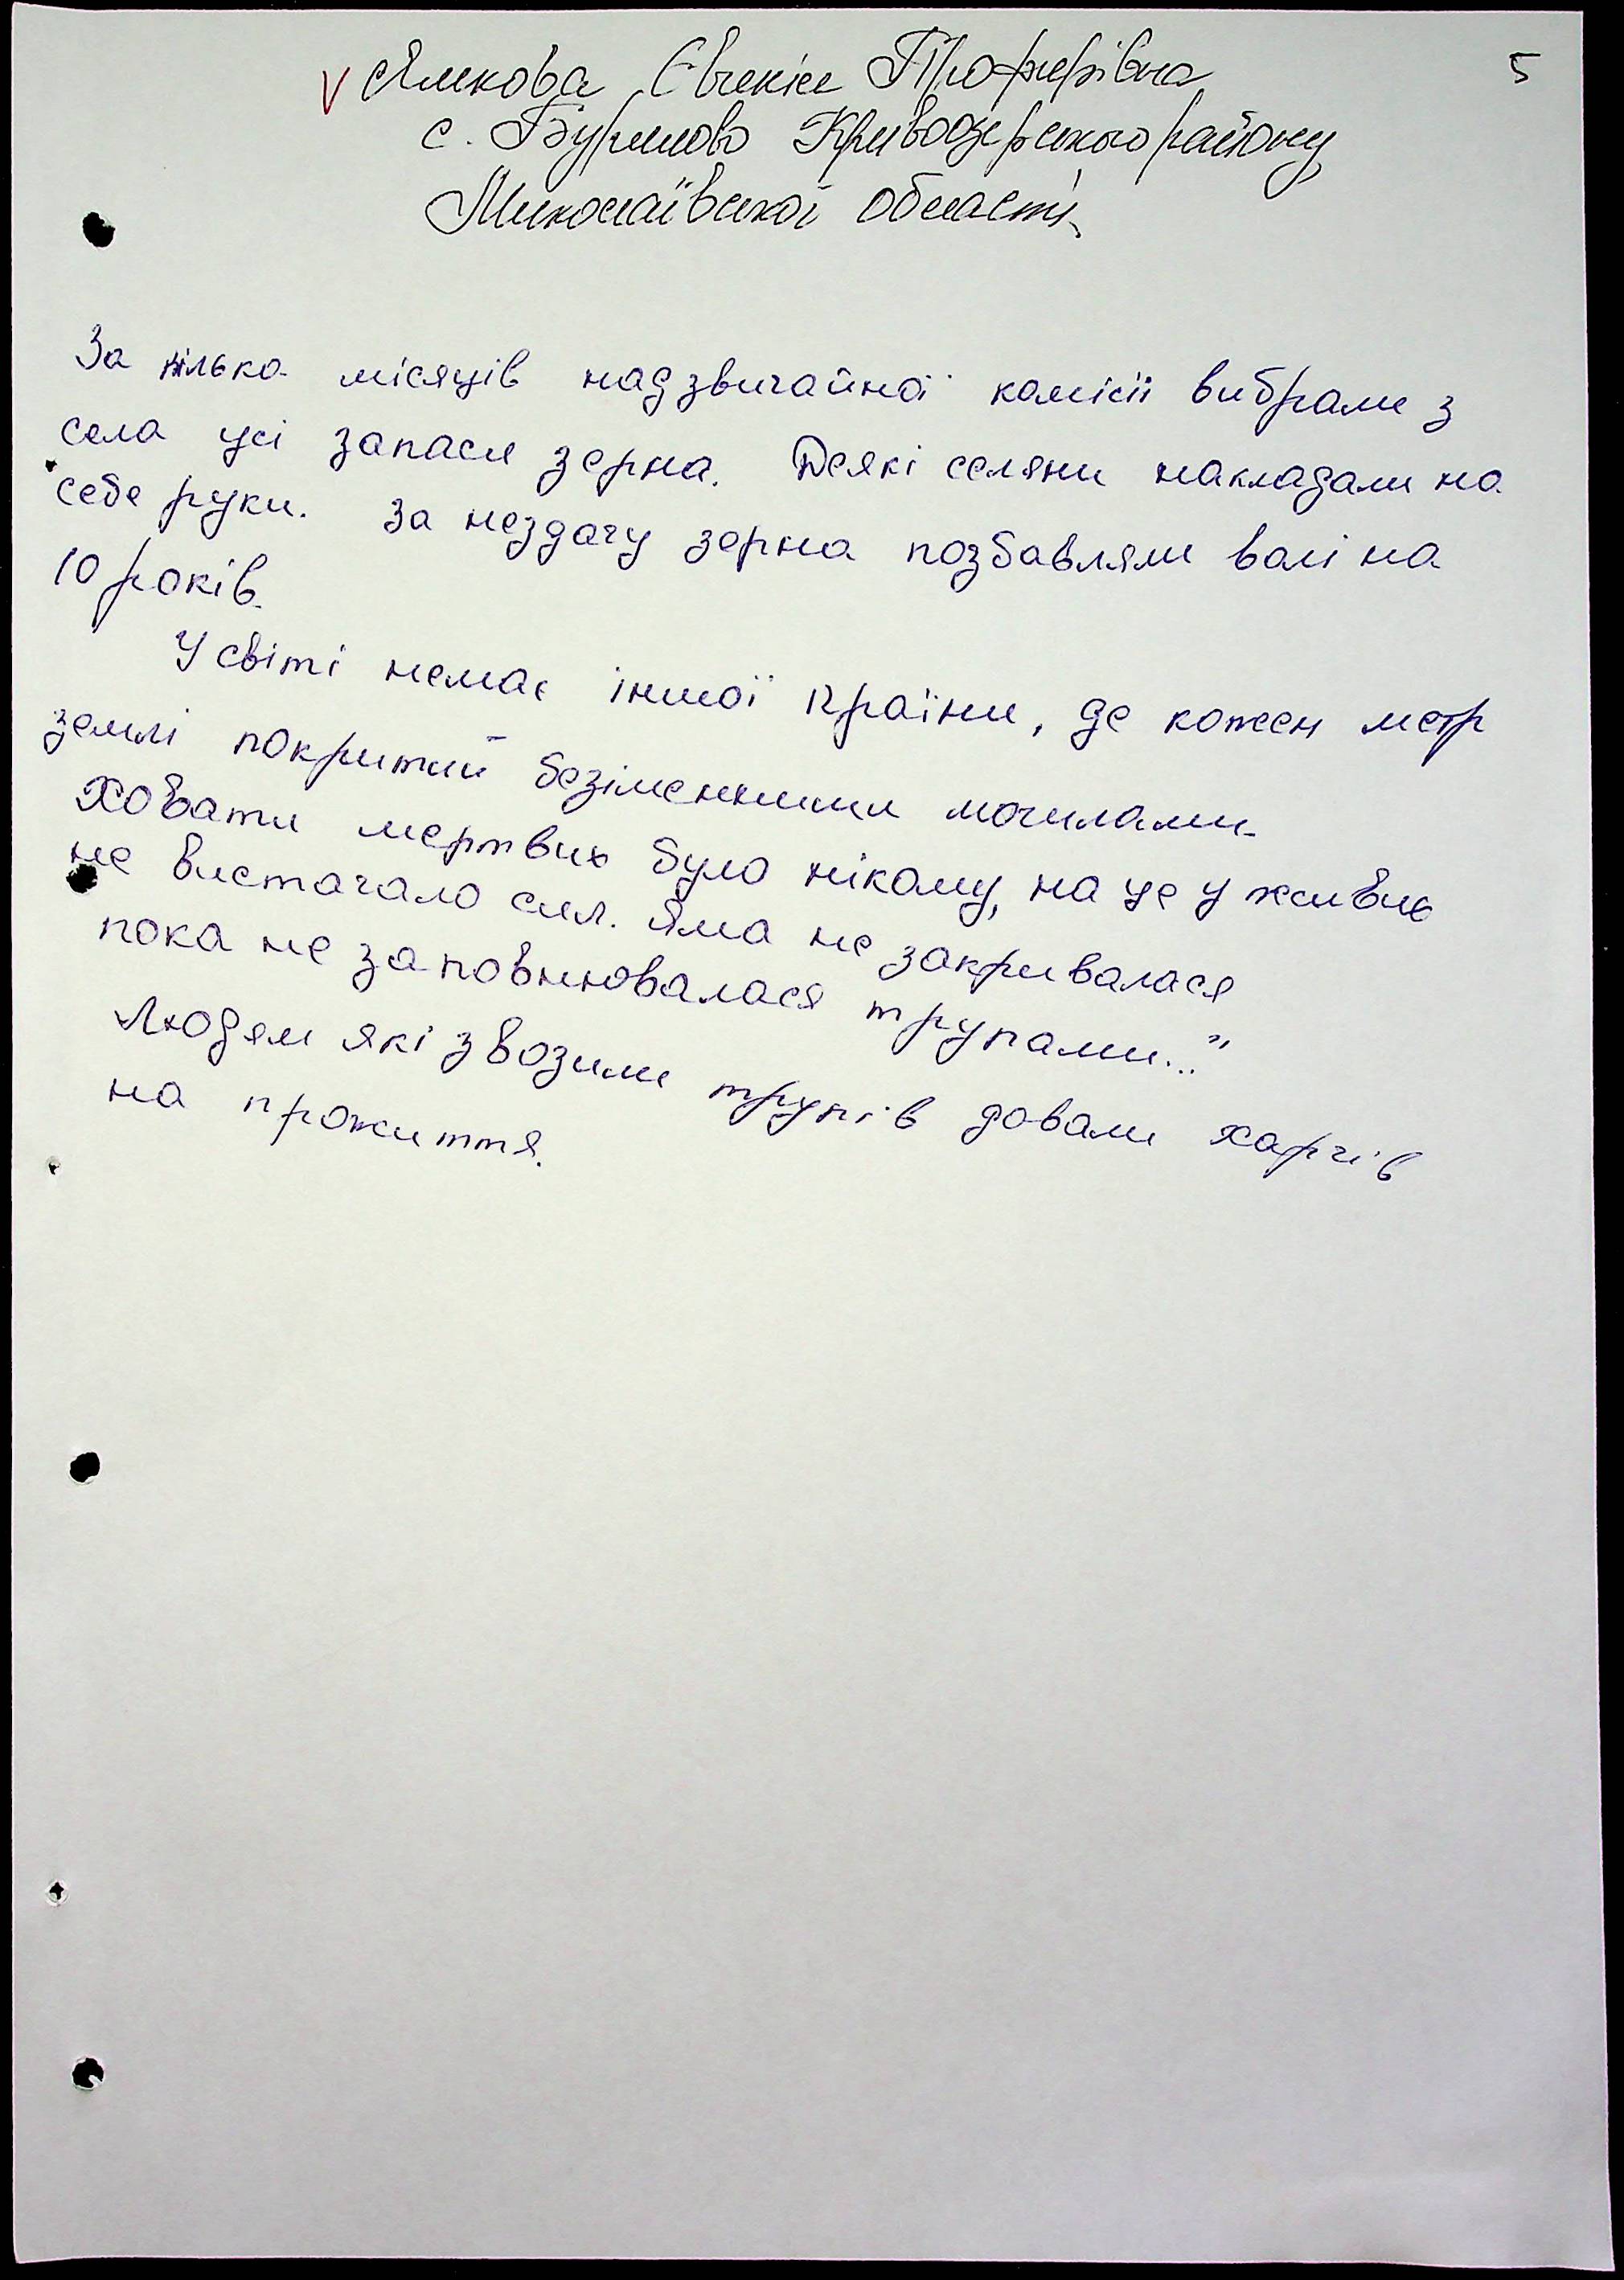 5
Ямкова Євгенія Профирівна
с. Бурилово Кривоозерського району
Миколаївської області
За кілька місяців надзвичайної комісії вибрали з
села усі запаси зерна. Деякі селяни накладали на
себе руки. За нездачу зерна позбавляли волі на
10 років.
У світі немає іншої країни, де кожен метр
землі покритий безіменними могилами.
Ховати мертвих було нікому, на це у живих
не вистачало сил. Яма не закривалася
пока не заповнювалася трупами..."
Людям які звозили трупів довали харчів
на прожиття.